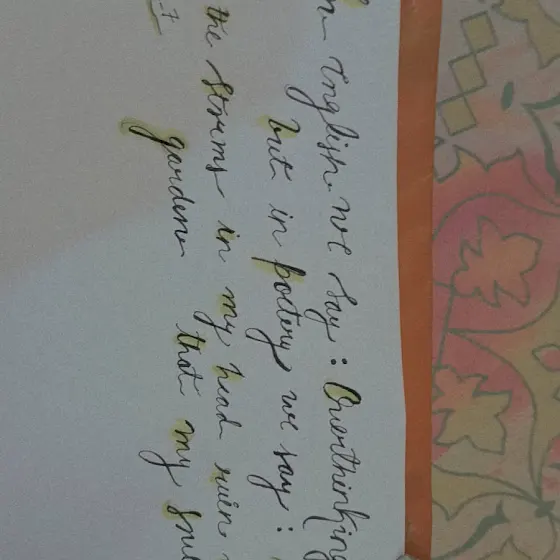 English we say: Overthinking
but in poetry we say:
the storms in my head ruin
garden that my